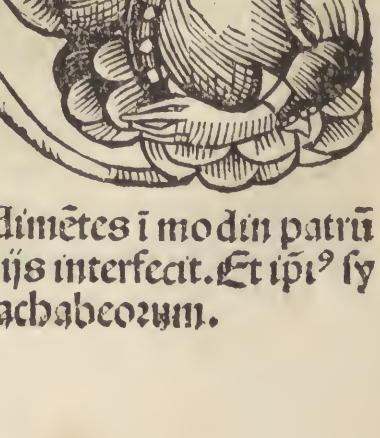 dimẽtes ĩ modin patrũ
ijs interfecit. Et ip̃iꝰ ſy
achabeoꝛum.